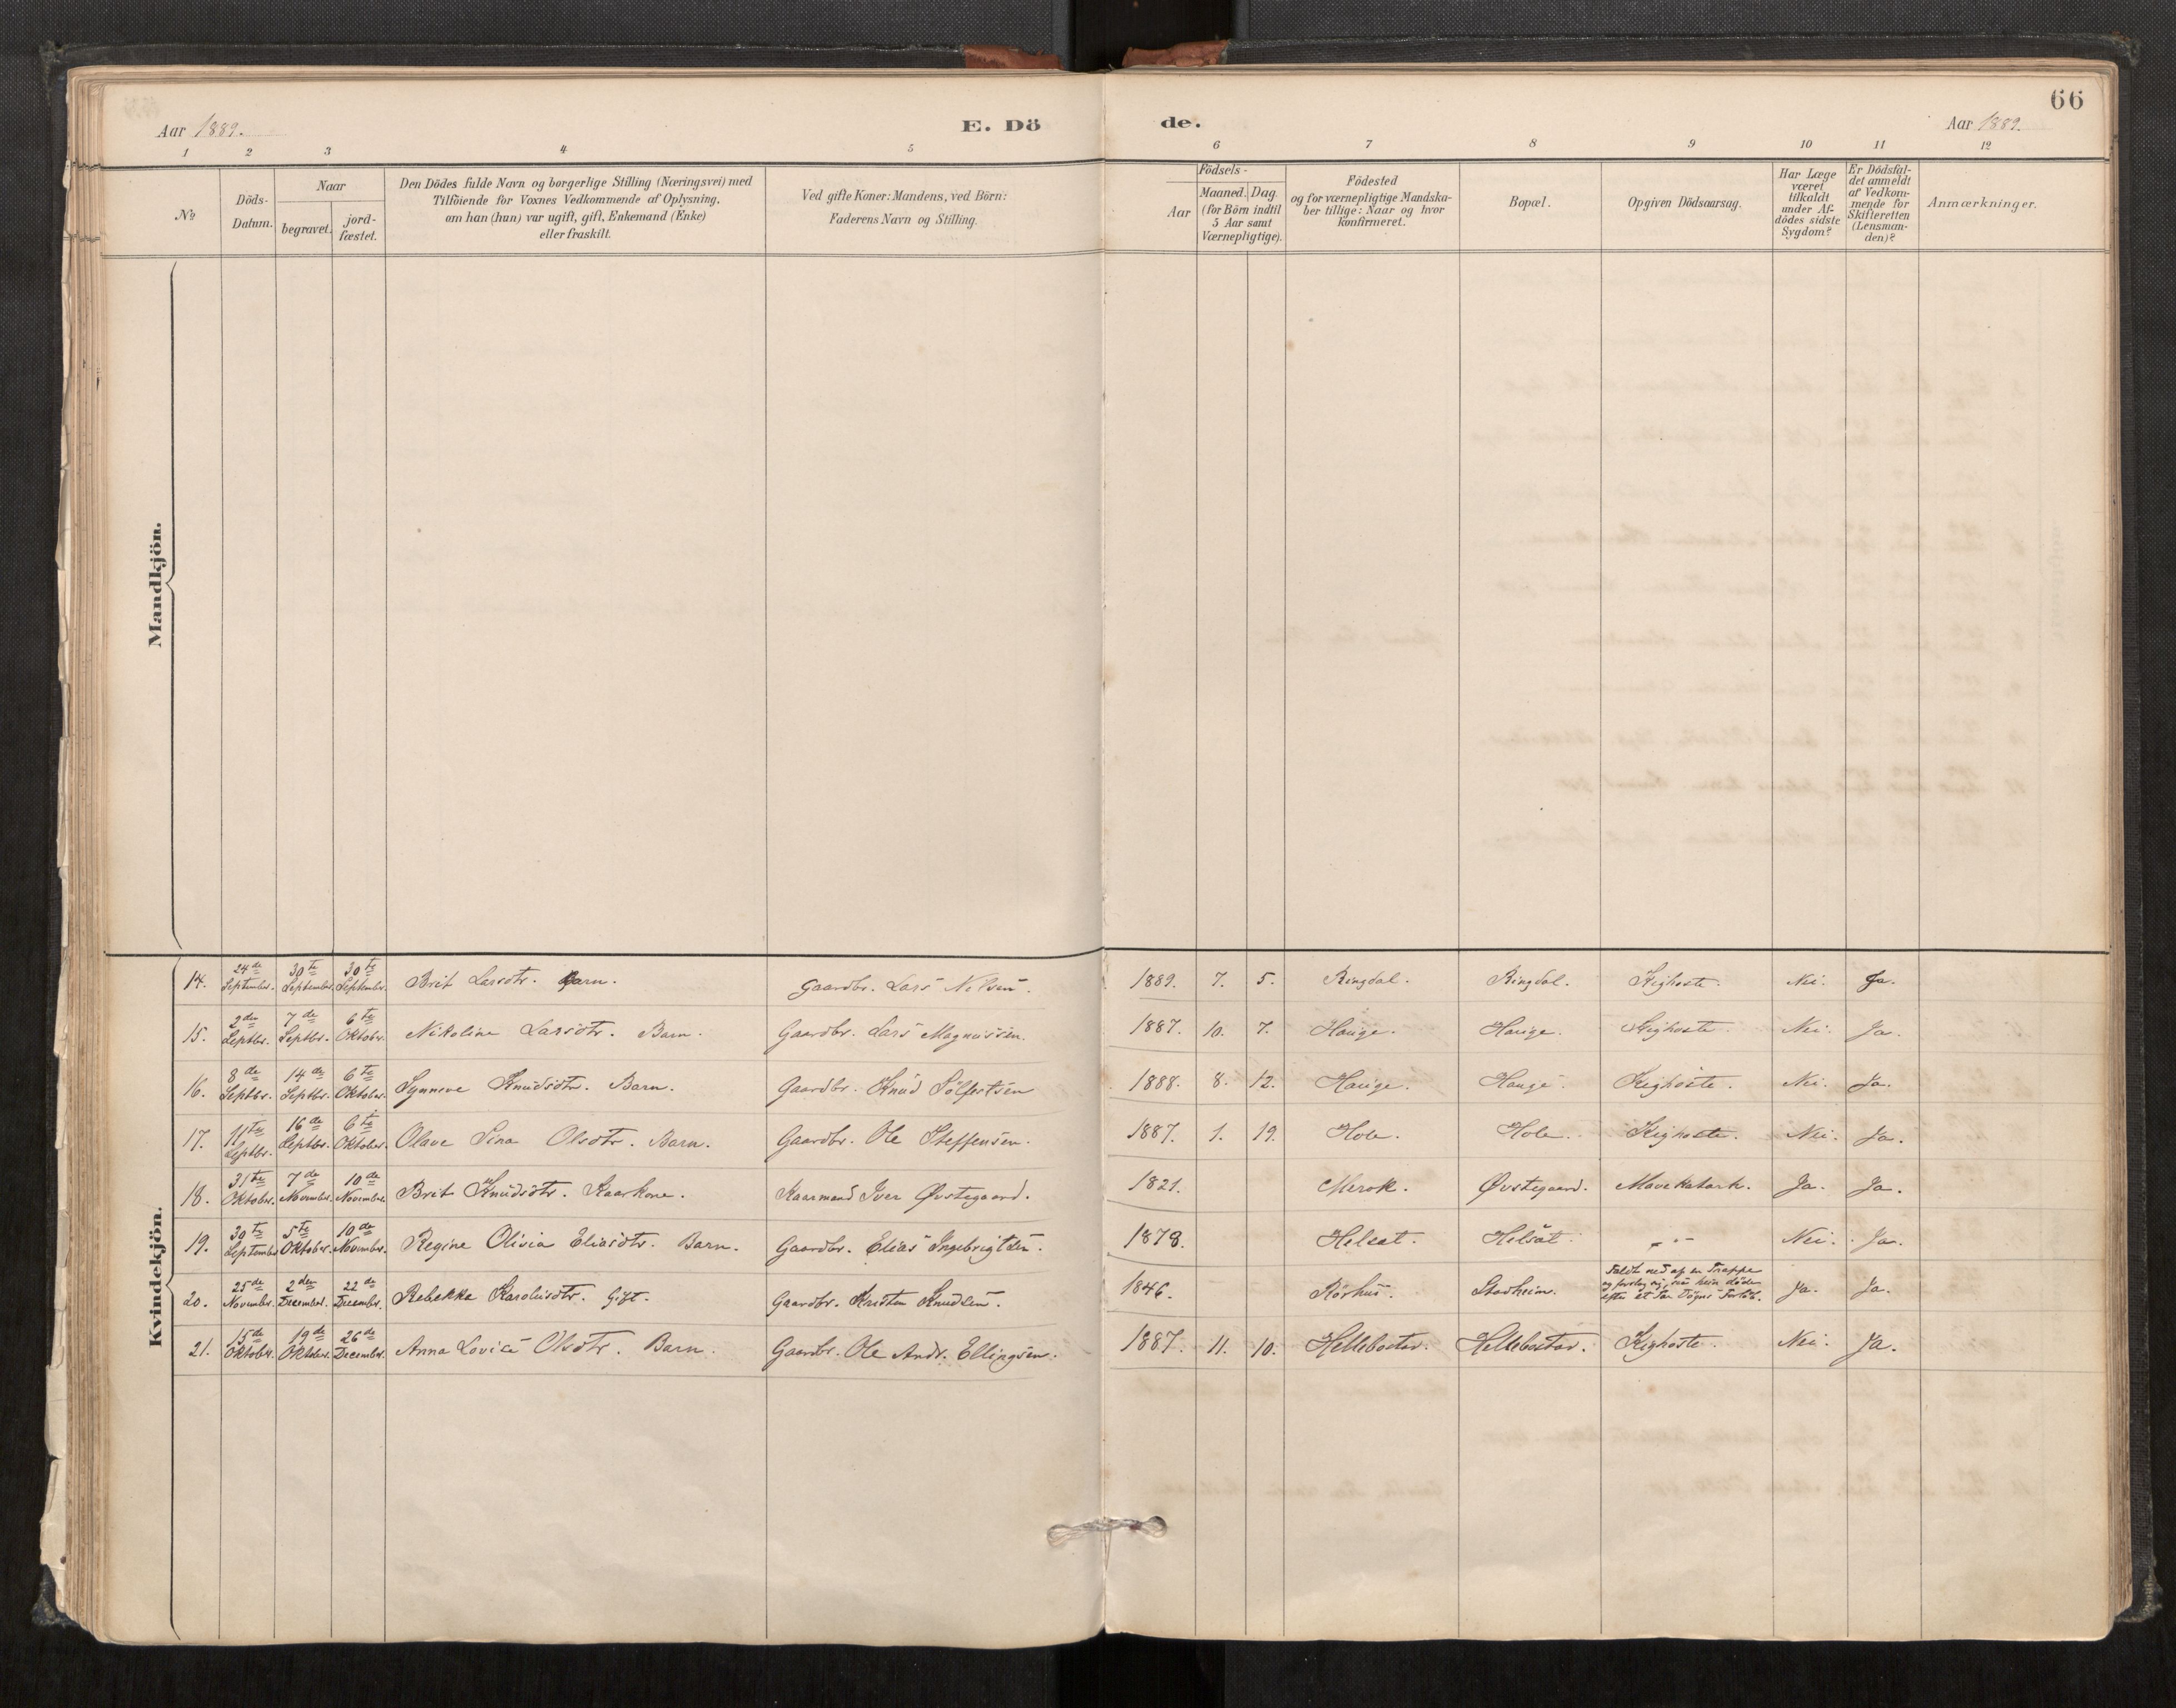 66
Aar 1889. E. Dö de. Aar 1889.
1 2 3 4 5 6 7 8 9 10 11 12
№
Döds-
Datum.
Naar
begravet.
jord-
fæstet.
Den Dödes fulde Navn og borgerlige Stilling (Næringsvei) med
Tilföiende for Voxnes Vedkommende af Oplysning,
om han (hun) var ugift, gift, Enkemand (Enke)
eller fraskilt.
Ved gifte Koner: Mandens, ved Börn:
Faderens Navn og Stilling.
Födsels-
Aar
Maaned. Dag.
(for Börn indtil
5 Aar samt
Værnepligtige).
Födested
og for værnepligtige Mandska-
ber tillige: Naar og hvor
konfirmeret.
Bopæl.
Opgiven Dödsaarsag.
Har Læge
været
tilkaldt
under Af-
dödes sidste
Sygdom?
Er Dödsfal-
det anmeldt
af Vedkom-
mende for
Skifteretten
(Lensman-
den)?
Anmærkninger.
Mandkjön.
Kvindekjön.
14. 24de September. 30te September. 30te September. Brit Larsdtr. Barn. Gaardbr. Lars Nilsen. 1889. 7. 5. Ringdal. Ringdal. Kighoste. Nei. Ja.
15. 2den Septbr. 7de Septbr. 6te Oktober. Nikoline Larsdtr. Barn. Gaardbr. Lars Magnussen. 1887. 10. 7. Hauge. Hauge. Kighoste. Nei. Ja.
16. 8de Septbr. 14de Septbr. 6te Oktober. Synneve Knudsdtr. Barn. Gaardbr. Knud Sölfestsen 1888. 8. 12. Hauge. Hauge. Kighoste. Nei. Ja.
17. 11te Septbr. 16de Septbr. 6te Oktober. Olave Sina Olsdtr. Barn. Gaardbr. Ole Steffensen. 1887. 1. 19. Hole. Hole. Kighoste. Nei. Ja.
18. 31te Oktober. 7de November. 10de November. Brit Knudsdtr. Kaarkone. Kaarmand Iver Øvstegaard. 1821. Merok. Øvstegaard. Mavekatarh. Ja. Ja.
19. 30te September 5te Oktober. 10de November. Regine Olivia Eliasdtr. Barn. Gaardbr. Elias Ingebrigtsen. 1878. Helsat. Helsät. „ - Nei. Ja.
20. 25de November. 2den December. 22de December. Rebekka Karolusdtr. Gift. Gaardbr. Kristen Knudsen. 1846. Rörhus. Stadheim. Faldt ned af en Trappe
og forslog sig, saa hun döde
efter et Par Dögns Forløb. Ja. Ja.
21. 15de Oktober. 19de Oktober. 26de December. Anna Lovise Olsdtr. Barn. Gaardbr. Ole Andr. Ellingsen. 1887. 11. 10. Hellebostad. Hellebostad. Kighoste. Nei. Ja.